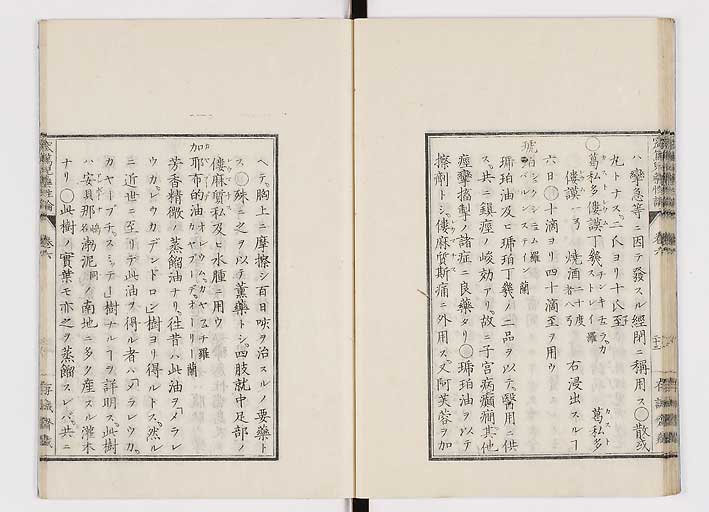 ハ攣急等ニ因テ發スル經閉ニ稱用ス○散或
九トナス二氏ヨリ十氏至
○葛私多僂謨丁幾
葛私多
僂謨一弓 燒酒二十度者八弓 右浸出スルヿ
六日○十滴ヨリ四十滴至ヲ用ウ
琥珀シュクシニュム羅バルンステイン蘭
琥珀油及ヒ琥珀丁幾ノ二品ヲ以テ醫用ニ供
ス。共ニ鎮痙ノ峻効アリ。故ニ子宮病癲癇其他
痙攣搐掣ノ諸症ニ良藥タリ○琥珀油ヲ以テ
擦劑トシ。僂麻質斯痛ニ外用ス。又阿芙蓉ヲ加
ヘテ。胸上ニ摩擦シ百日咳ヲ治スルノ要藥ト
ス○殊ニ之ヲ以テ薫藥トシ。四肢就中足部ノ
僂麻質私及ヒ水腫ニ用ウ
加耶布的油
芳香精微ノ蒸餾油ナリ。往昔ハ此油ヲ「メラレ
ウカ。レウカデンドロン」樹ヨリ得ルトス。然ル
ニ近世ニ至リテ此油ヲ得ル者ハ「メラレウカ。
カヤープチ。スミッテ」樹ナルヿヲ詳明ス。此樹
ハ安貝那島名渤泥同ノ南地ニ多ク産スル灌木
ナリ○此樹ノ實葉モ亦之ヲ蒸餾スレバ。共ニ